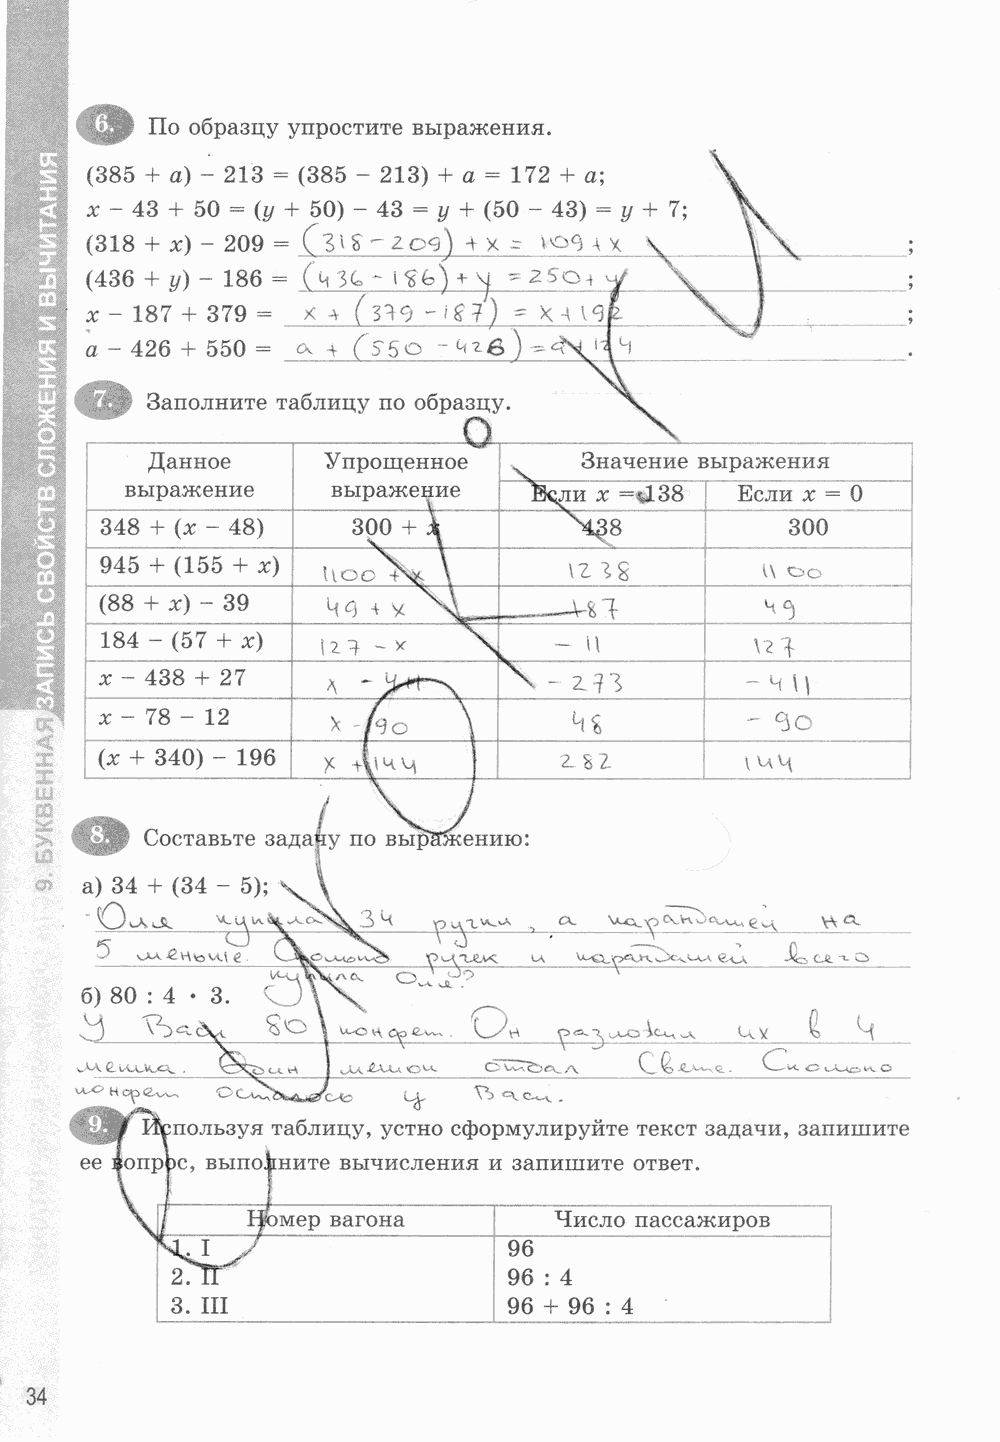 6. По образцу упростите выражения.
(385 + a) − 213 = (385 − 213) + a = 172 + a;
x − 43 + 50 = (y + 50) − 43 = y + (50 − 43) = y + 7;
(318 + x) − 209 = (318 − 209) + x = 109 + x ;
(436 + y) − 186 = (436 − 186) + y = 250 + y ;
x − 187 + 379 = x + (379 − 187) = x + 192 ;
a − 426 + 550 = a + (550 − 426) = a + 124 .
7. Заполните таблицу по образцу.
Данное выражение | Упрощенное выражение | Значение выражения
Если x = 138 | Если x = 0
348 + (x − 48) | 300 + x | 438 | 300
945 + (155 + x) | 1100 + x | 1238 | 1100
(88 + x) − 39 | 49 + x | 187 | 49
184 − (57 + x) | 127 − x | − 11 | 127
x − 438 + 27 | x − 411 | − 273 | − 411
x − 78 − 12 | x − 90 | 48 | − 90
(x + 340) − 196 | x + 144 | 282 | 144
8. Составьте задачу по выражению:
а) 34 + (34 − 5);
Оля купила 34 ручки, а карандашей на
5 меньше. Сколько ручек и карандашей всего
купила Оля?
б) 80 : 4 · 3.
У Васи 80 конфет. Он разложил их в 4
мешка. Один мешок отдал Свете. Сколько
конфет осталось у Васи.
9. Используя таблицу, устно сформулируйте текст задачи, запишите
ее вопрос, выполните вычисления и запишите ответ.
Номер вагона | Число пассажиров
1. I | 96
2. II | 96 : 4
3. III | 96 + 96 : 4
9. БУКВЕННАЯ ЗАПИСЬ СВОЙСТВ СЛОЖЕНИЯ И ВЫЧИТАНИЯ
34